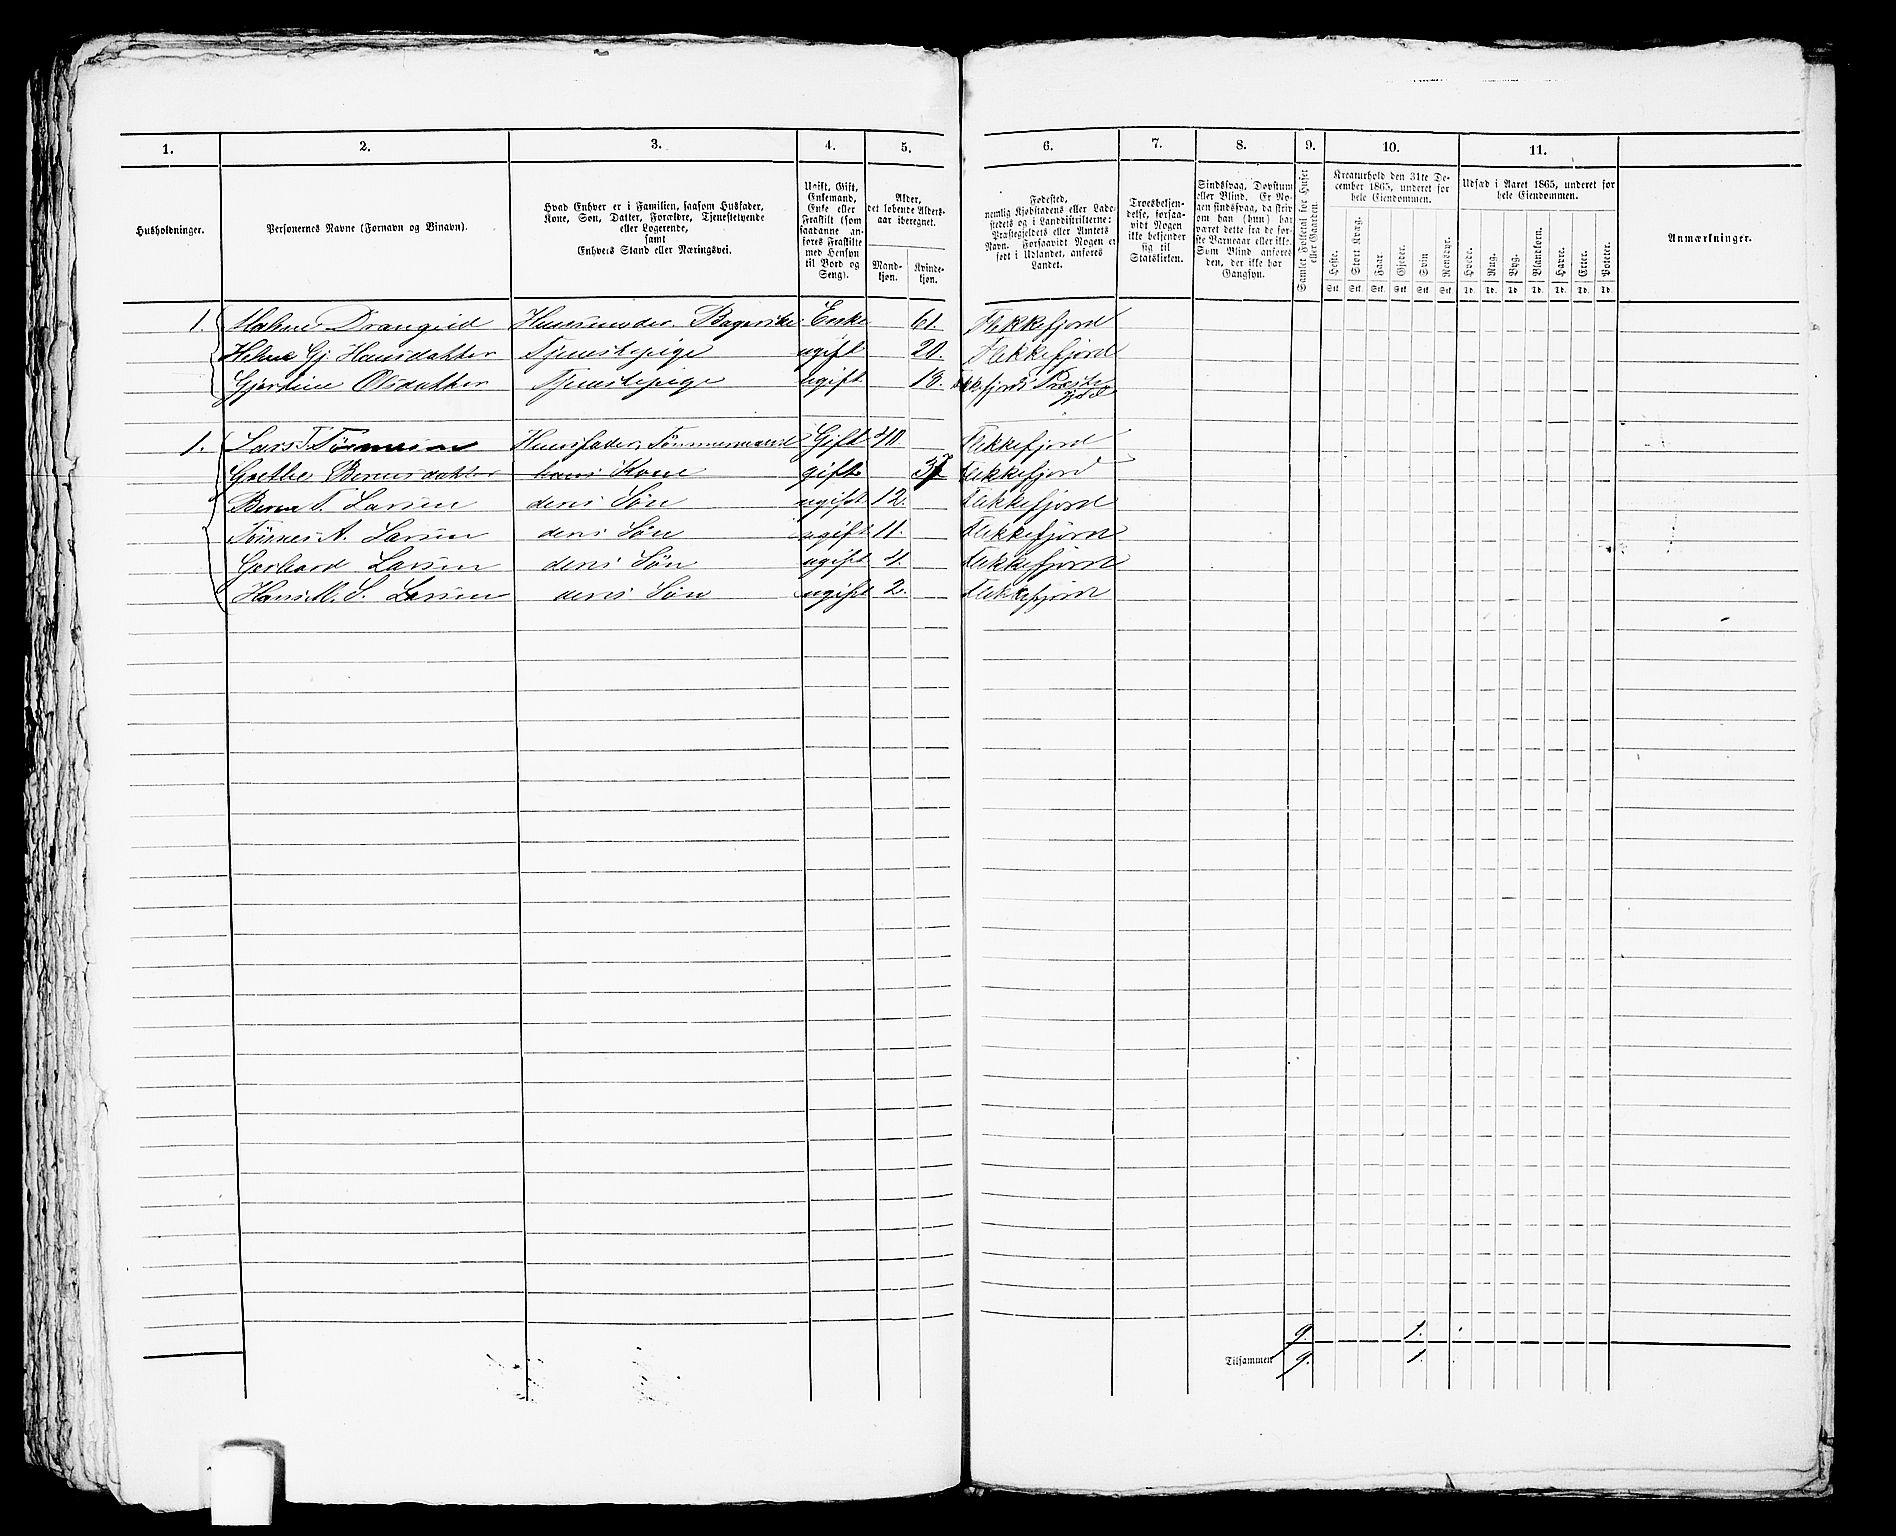 1. 2. 3. 4. 5. 6. 7. 8. 9. 10. 11.
Husholdninger.
Personernes Navne (Fornavn og Binavn).
Hvad Enhver er i Familien, saasom Husfader,
Kone, Søn, Datter, Forældre, Tjenestetyende
eller Logerende,
samt
Enhvers Stand eller Næringsvei.
Ugift, Gift,
Enkemand,
Enke eller
Fraskilt (som
saadanne an-
føres Fraskilte
med Hensyn
til Bord og
Seng).
Alder,
det løbende Alders-
aar iberegnet.
Mand-
kjøn.
Kvinde-
kjøn.
Fødested,
nemlig Kjøbstadens eller Lade-
stedets og i Landdistrikterne:
Præstegjeldets eller Amtets
Navn. Forsaavidt Nogen er
født i Udlandet, anføres
Landet.
Troesbekjen-
delse, forsaa-
vidt Nogen
ikke bekjender
sig til
Statskirken.
Sindssvag, Døvstum
eller Blind. Er No-
gen sindssvag, da skri-
ves om han (hun) har
været dette fra de før-
ste Barneaar eller ikke.
Som Blind anføres
den, der ikke har
Gangsyn.
Samlet Folketal for Huset
eller Gaarden.
Kreaturhold den 31te De-
cember 1865, underet for
hele Eiendommen.
Heste. Stort Kvæg. Faar. Gjeder. Svin Rensdyr.
Stk. Stk. Stk. Stk. Stk. Stk.
Udsæd i Aaret 1865, underet for
hele Eiendommen.
Hvede. Rug. Byg. Blandkorn. Havre. Erter. Poteter.
Td. Td. Td. Td. Td. Td. Td.
Anmærkninger.
1. Malene Drangeid Huusmoder. Enke 61. Flekkefjord
Helene Gj. Hansdatter Tjenestepige ugift 20. Flekkefjord
Gjertine Olsdatter Tjenestepige ugift 18. Flekkefjords Præste
gjeld
1. Lars T. Tønnesen Huusfader, Tømmermand Gift 40. Flekkefjord
Grethe Berntsdatter hans Kone gift 37 Flekkefjord
Bernt T. Larsen deres Søn ugift 12. Flekkefjord
Tønnes A. Larsen deres Søn ugift 11. Flekkefjord
Gerhard Larsen deres Søn ugift 4. Flekkefjord
Hans M. S. Larsen deres Søn ugift 2. Flekkefjord
9. 1.
Tilsammen 9. 1.